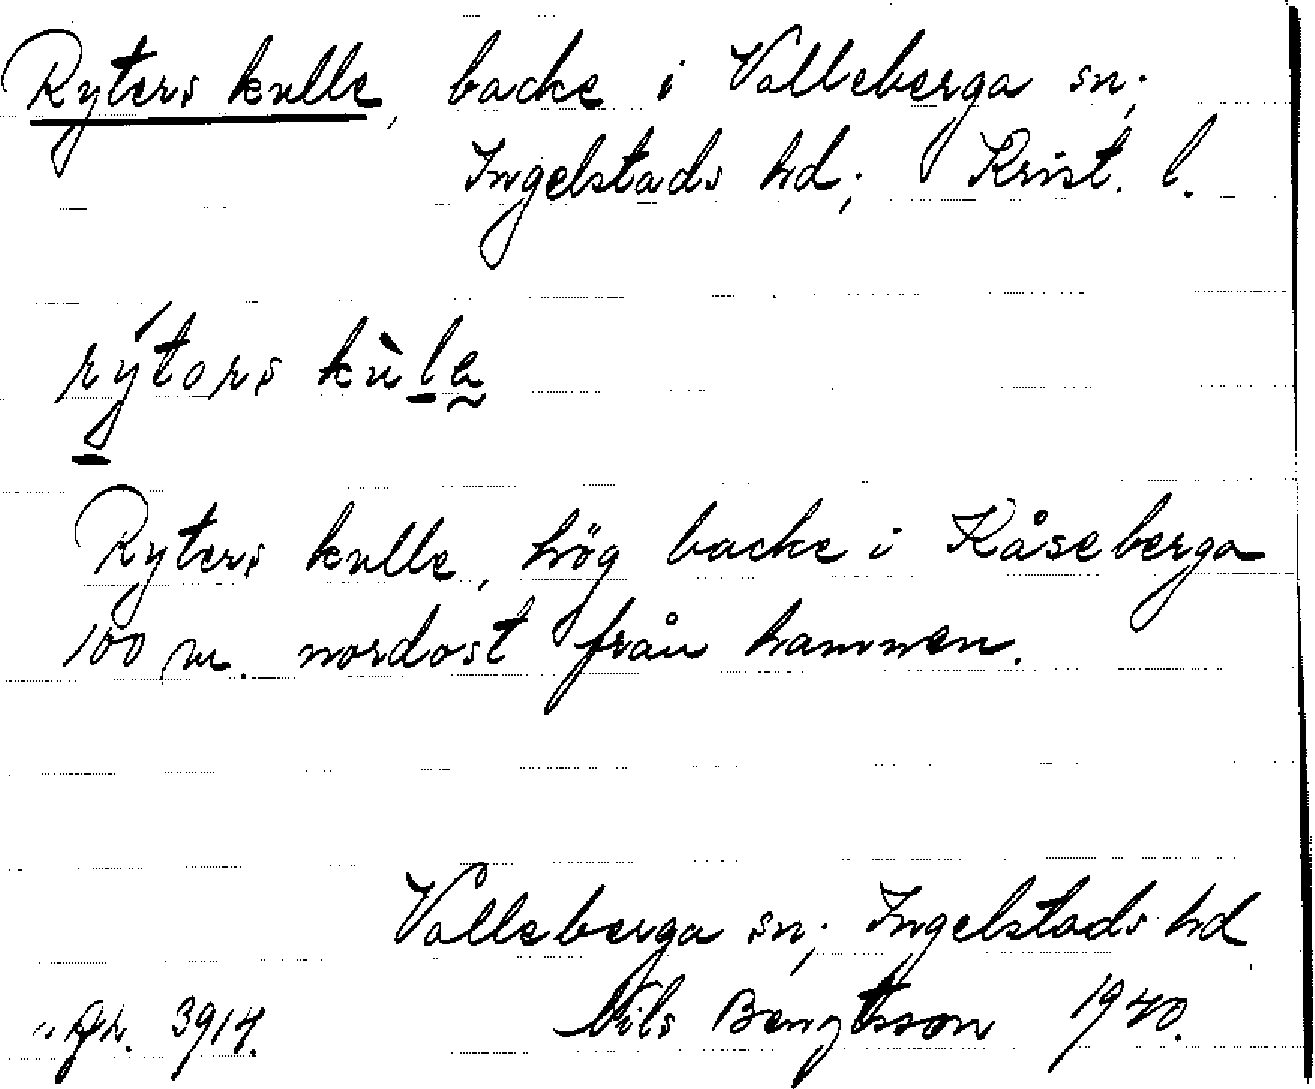 Ryters kulle, backe i Valleberga sn;
Ingelstads hd; Krist. l.
rýtors kùla
Ryters kulle, hög backe i Kåseberga
100 m. nordost från hamnen.
Valleberga sn; Ingelstads hd
3914. Nils Bengtsson 1940.